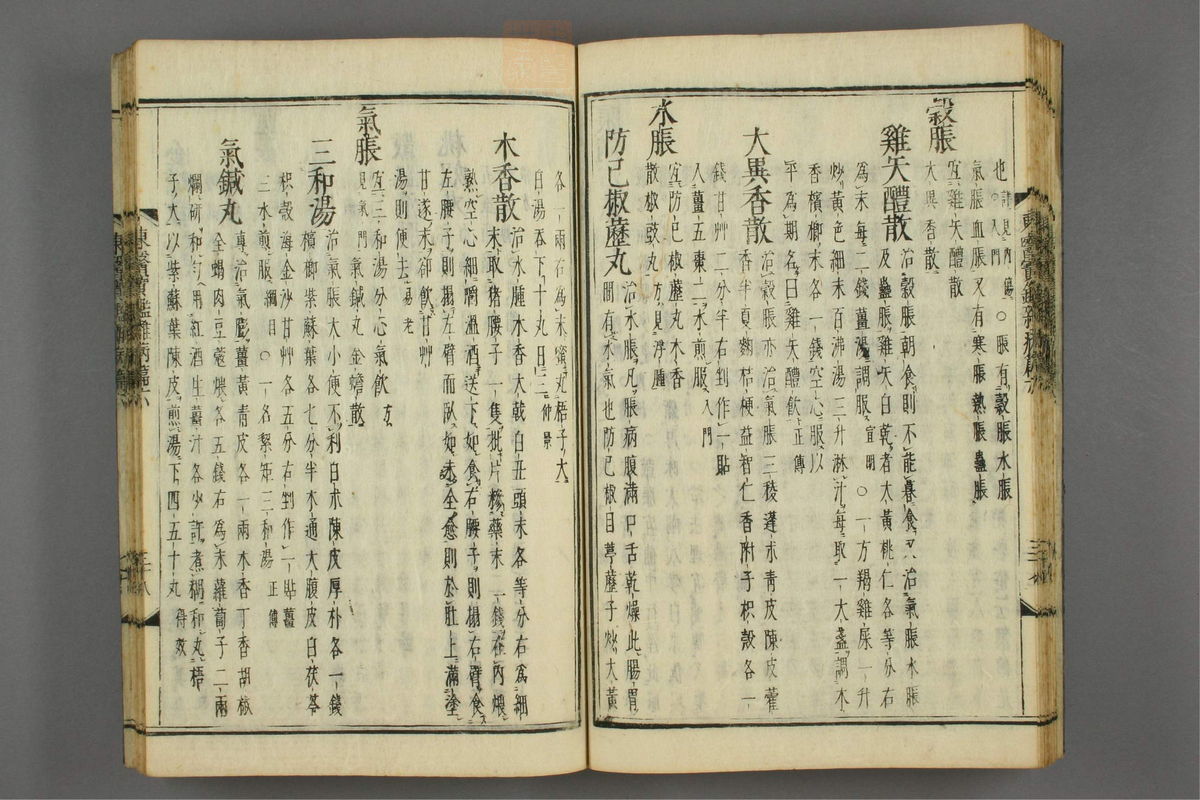 也詳見內傷○入門○脹有穀脹水脹
氣脹血脹又有寒脹熱脹蠱脹
穀脹
宜雞矢醴散
大異香散
雞矢醴散治穀脹朝食則不能暮食又治氣脹水脹
及蠱脹雞矢白乾者大黃桃仁各等分右
為末每二錢薑湯調服宣明○一方羯雞屎一升
炒黃色百沸湯三升淋汁每取一大盞調木
香檳榔末各一錢空心服以
平為期名曰雞矢醴飲正傳
大異香散治穀脹亦治氣脹三稜蓬朮青皮陳皮藿
香半夏麴桔梗益智仁香附子枳殼各一
錢甘艸二分半右剉作一貼
入薑五棗二水煎服入門
水脹
宜防己椒藶丸木香
散椒豉丸方見浮腫
防己椒藶丸治水脹凡脹病腹滿口舌乾燥此腸胃
間有水氣也防己椒目葶藶子炒大黃
各一兩右為末蜜丸梧子大
白湯吞下十丸日三仲景
木香散治水腫木香大戟白丑頭末各等分右為細
末取猪腰子一隻批片糝藥末二錢在內煨
熟空心細嚼溫酒送下如食右腰子則搨右臂食
左腰子則搨左臂而臥如未全愈則於肚上滿塗
甘遂末却飲甘艸
湯則便去易老
氣脹
宜三和湯分心氣飲方
見氣門氣鍼丸金蟾散
三和湯治氣脹大小便不利白朮陳皮厚朴各一錢
檳榔紫蘇葉各七分半木通大腹皮白茯苓
枳殼海金沙甘艸各五分右剉作一貼薑
三水煎服綱目○一名絜矩三和湯正傳
氣鍼丸專治氣膨薑黃青皮各一兩木香丁香胡椒
全蝎肉豆蔻煨各五錢右為末蘿蔔子二兩
爛研和勻用紅酒生薑汁各少許煮糊和丸梧
子大以紫蘇葉陳皮煎湯下四五十丸得效